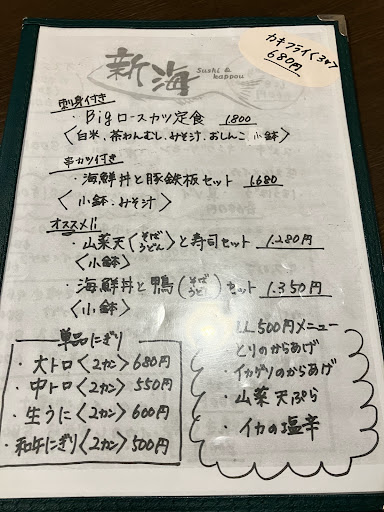 カキフライ〈3ケ〉
680円
新海
Sushi & kappou
刺身付き
・Bigロースカツ定食 1.800
〈白米、茶わんむし、みそ汁、おしんこ、小鉢〉
串カツ付き
・海鮮丼と豚鉄板セット 1.680
〈小鉢、みそ汁〉
オススメ!!
・山菜天(そばうどん)と寿司セット 1.280円
〈小鉢〉
・海鮮丼と鴨(そばうどん)セット 1.350円
〈小鉢〉
単品にぎり
・大トロ〈2カン〉680円
・中トロ〈2カン〉550円
・生うに〈2カン〉600円
・和牛にぎり〈2カン〉500円
ALL 500円メニュー
・とりのからあげ
・イカゲソのからあげ
・山菜天ぷら
・イカの塩辛